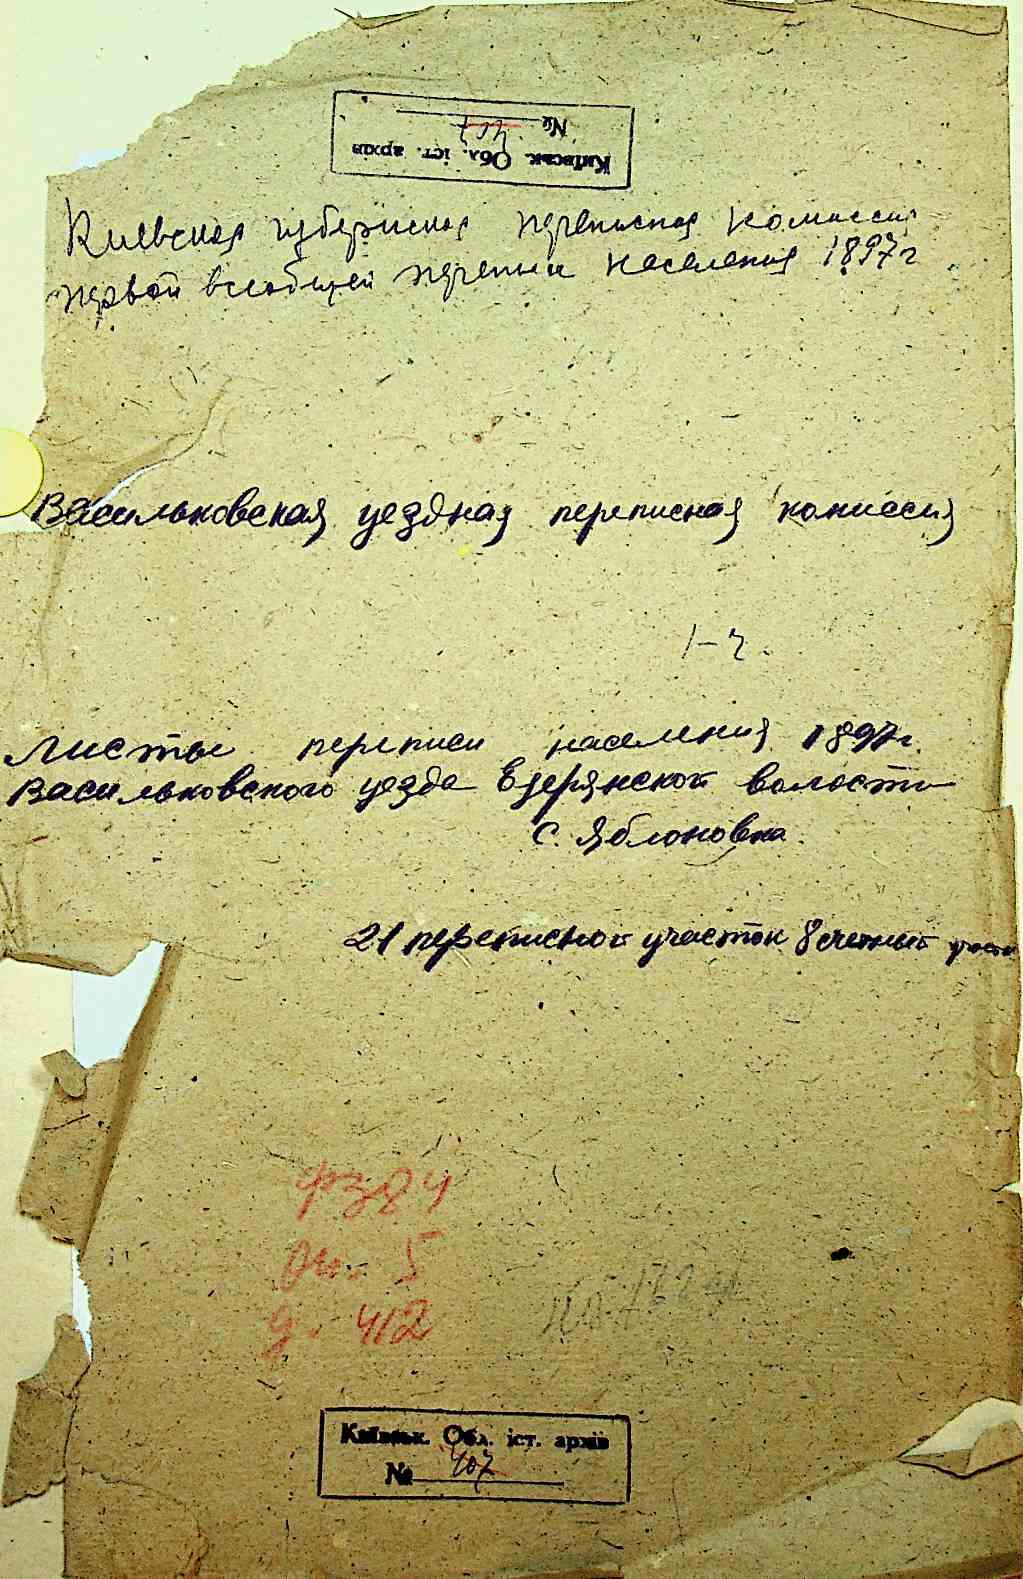 Київськ. Обл. іст. архів
№ 407
Киевская губернская переписная комиссия
первой всеобщей переписи населения 1897 г
Васильковская уездная переписная комиссия
1-ч.
Листы переписи населения 1897 г.
Васильковского уезда Езерянской волости
с. Яблоновка.
21 переписной участок 8 счетный участок
ф 384
оп. 5
д. 412
Київськ. Обл. іст. архів
№ 407